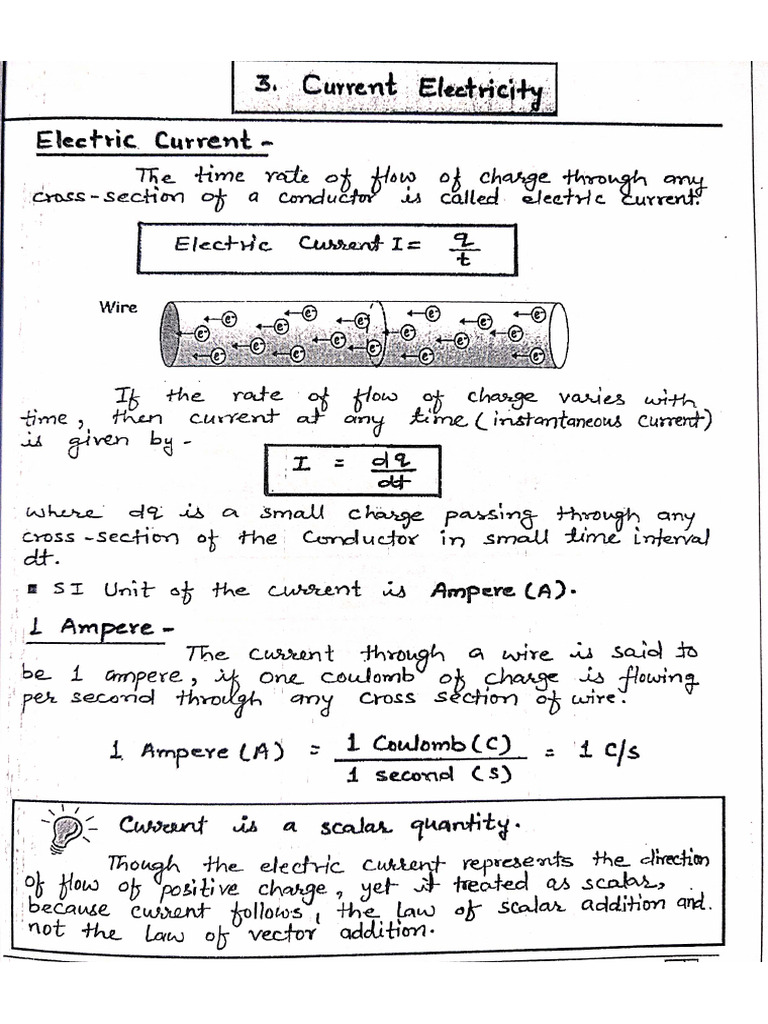 3. Current Electricity
Electric Current -
The time rate of flow of charge through any
cross-section of a conductor is called electric current.
Electric Current I = q/t
Wire
e⁻ e⁻ e⁻ e⁻ e⁻ e⁻
e⁻ e⁻ e⁻ e⁻ e⁻ e⁻
e⁻ e⁻ e⁻ e⁻ e⁻ e⁻
If the rate of flow of charge varies with
time, then current at any time (instantaneous current)
is given by -
I = dq/dt
where dq is a small charge passing through any
cross-section of the Conductor in small time interval
dt.
▪ SI Unit of the current is Ampere (A).
1 Ampere -
The current through a wire is said to
be 1 ampere, if one coulomb of charge is flowing
per second through any cross section of wire.
1 Ampere (A) = 1 Coulomb (C) / 1 second (s) = 1 C/s
Current is a scalar quantity.
Though the electric current represents the direction
of flow of positive charge, yet it treated as scalar,
because current follows, the law of scalar addition and
not the law of vector addition.